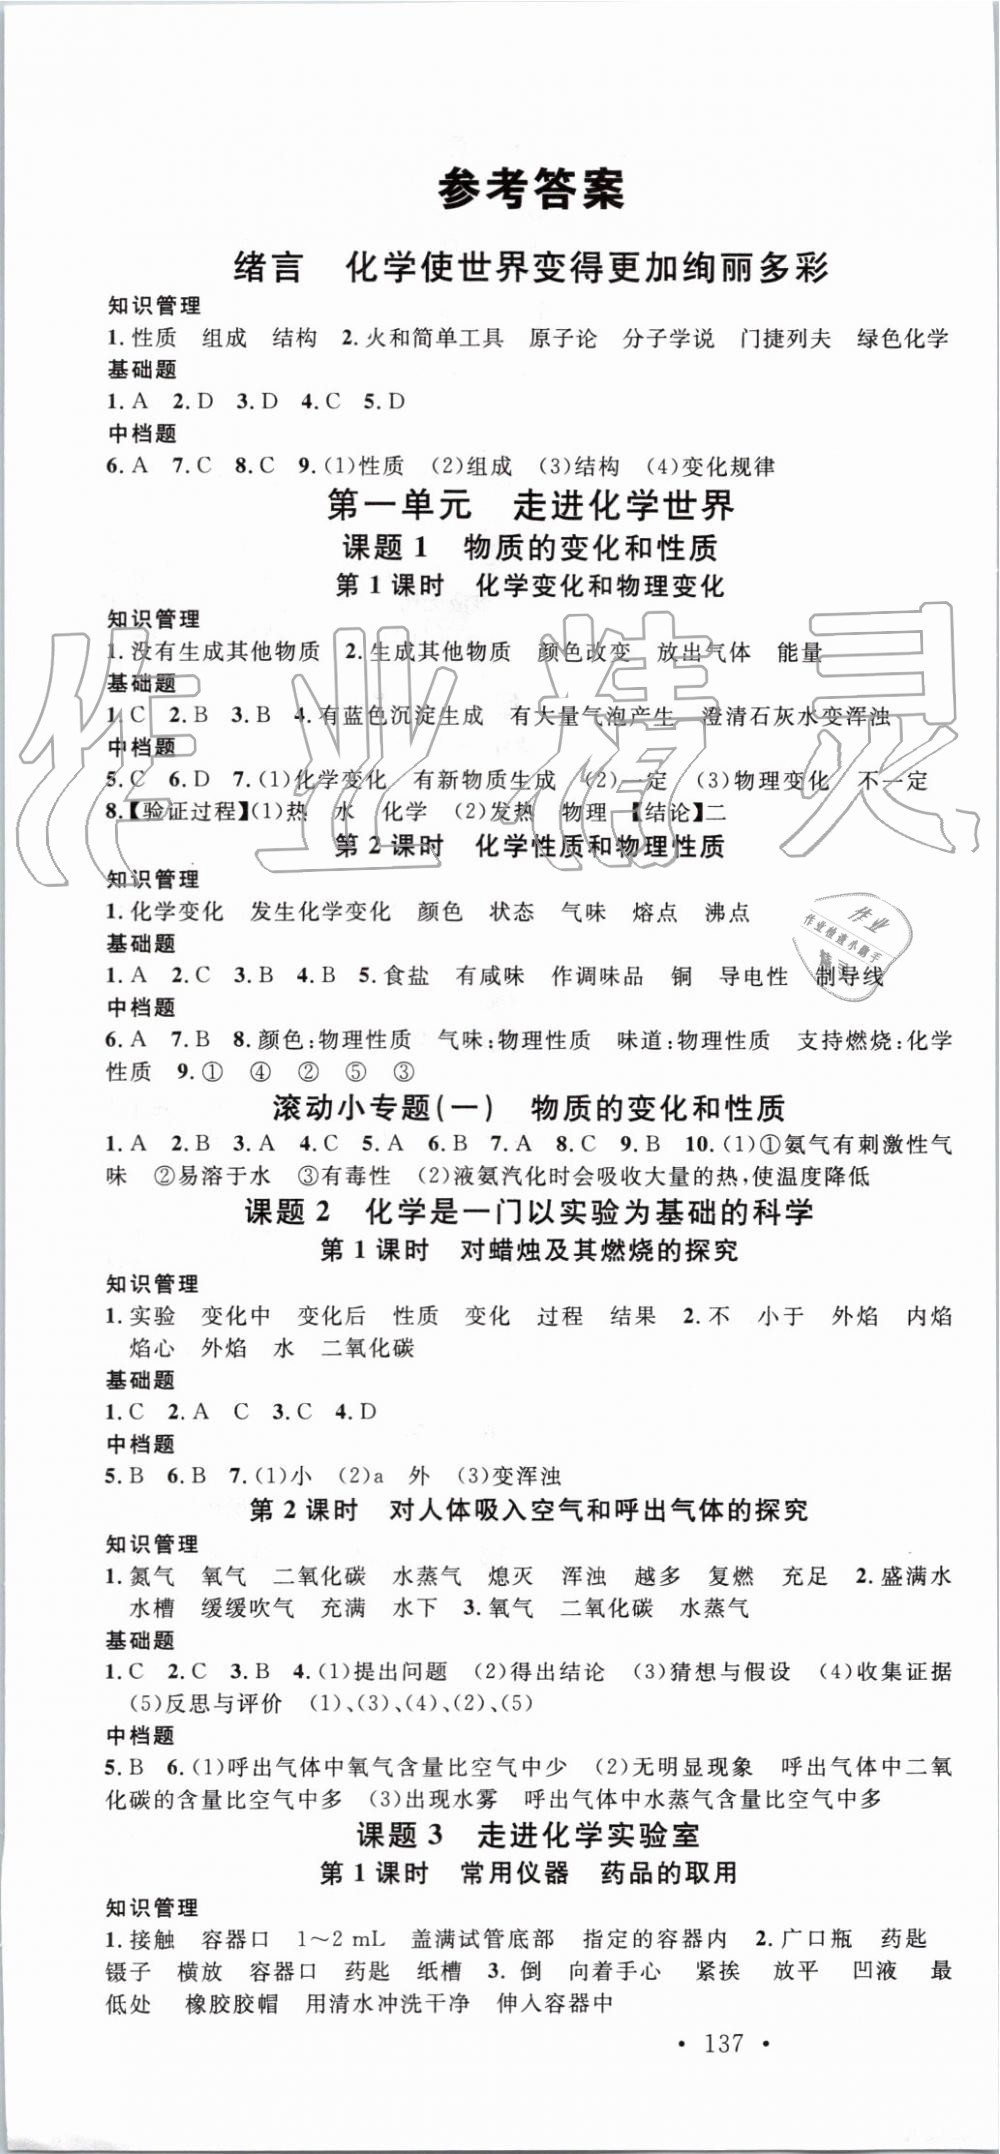 参考答案
绪言　化学使世界变得更加绚丽多彩
知识管理
1. 性质　组成　结构　2. 火和简单工具　原子论　分子学说　门捷列夫　绿色化学
基础题
1. A　2. D　3. D　4. C　5. D
中档题
6. A　7. C　8. C　9. (1)性质　(2)组成　(3)结构　(4)变化规律
第一单元　走进化学世界
课题 1　物质的变化和性质
第 1 课时　化学变化和物理变化
知识管理
1. 没有生成其他物质　2. 生成其他物质　颜色改变　放出气体　能量
基础题
1. C　2. B　3. B　4. 有蓝色沉淀生成　有大量气泡产生　澄清石灰水变浑浊
中档题
5. C　6. D　7. (1)化学变化　有新物质生成　(2)一定　(3)物理变化　不一定
8.【验证过程】(1)热　水　化学　(2)发热　物理　【结论】二
第 2 课时　化学性质和物理性质
知识管理
1. 化学变化　发生化学变化　颜色　状态　气味　熔点　沸点
基础题
1. A　2. C　3. B　4. B　5. 食盐　有咸味　作调味品　铜　导电性　制导线
中档题
6. A　7. B　8. 颜色:物理性质　气味:物理性质　味道:物理性质　支持燃烧:化学
性质　9. ①　④　②　⑤　③
滚动小专题(一)　物质的变化和性质
1. A　2. B　3. A　4. C　5. A　6. B　7. A　8. C　9. B　10. (1)①氨气有刺激性气
味　②易溶于水　③有毒性　(2)液氨汽化时会吸收大量的热,使温度降低
课题 2　化学是一门以实验为基础的科学
第 1 课时　对蜡烛及其燃烧的探究
知识管理
1. 实验　变化中　变化后　性质　变化　过程　结果　2. 不　小于　外焰　内焰
焰心　外焰　水　二氧化碳
基础题
1. C　2. A　C　3. C　4. D
中档题
5. B　6. B　7. (1)小　(2)a　外　(3)变浑浊
第 2 课时　对人体吸入空气和呼出气体的探究
知识管理
1. 氮气　氧气　二氧化碳　水蒸气　熄灭　浑浊　越多　复燃　充足　2. 盛满水
水槽　缓缓吹气　充满　水下　3. 氧气　二氧化碳　水蒸气
基础题
1. C　2. C　3. B　4. (1)提出问题　(2)得出结论　(3)猜想与假设　(4)收集证据
(5)反思与评价　(1)、(3)、(4)、(2)、(5)
中档题
5. B　6. (1)呼出气体中氧气含量比空气中少　(2)无明显现象　呼出气体中二氧
化碳的含量比空气中多　(3)出现水雾　呼出气体中水蒸气含量比空气中多
课题 3　走进化学实验室
第 1 课时　常用仪器　药品的取用
知识管理
1. 接触　容器口　1～2 mL　盖满试管底部　指定的容器内　2. 广口瓶　药匙
镊子　横放　容器口　药匙　纸槽　3. 倒　向着手心　紧挨　放平　凹液　最
低处　橡胶胶帽　用清水冲洗干净　伸入容器中
• 137 •
作业精灵
作业
作业检查小助手
精灵